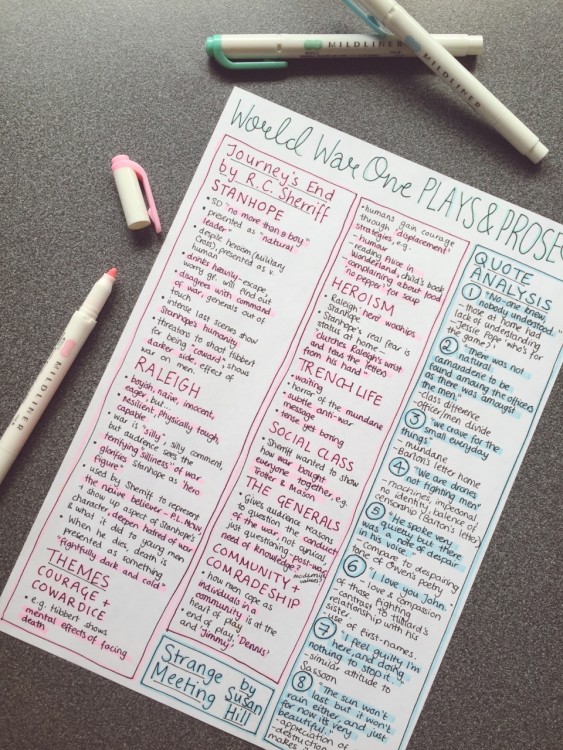 MILDLINER
MILDLINER
MILDLINER
World War One PLAYS & PROSE
Journey's End
by R.C. Sherriff
STANHOPE
• SD "no more than a boy"
presented as "natural
leader"
• despite heroism (military
Cross), presented as v.
human
• drinks heavily - escape,
worry gf. will find out
• disagrees with command
of war, generals out of
touch
• intense last scenes show
Stanhope's humanity
• threatens to shoot Hibbert
for being "coward": shows
darker side, effect of
war on men.
RALEIGH
• boyish, naive, innocent,
eager, but
• resilient, physically tough,
capable.
• war is "silly": silly comment,
but audience sees the
terrifying silliness of war
• glorifies Stanhope as "hero
figure"
• used by Sherriff to represent
the naive believer -
+ show up aspect of Stanhope's
character + deepen hatred of war
+ what it did to young men
• When he dies, death is
presented as something
"frightfully dark and cold"
THEMES
COURAGE +
COWARDICE
• e.g. Hibbert shows
mental effects of facing
death
• humans gain courage
through "displacement"
strategies, e.g.
- humour
- reading Alice in
Wonderland, child's book
- complaining about food
"no pepper" for soup
HEROISM
• Raleigh: hero worships
Stanhope
• Stanhope's real fear is
status at home -
"clutches Raleigh's wrist
and tears the letters
from his hand"
TRENCH LIFE
• waiting
• horror of the mundane
• subtle anti-war
message
• tense yet boring
SOCIAL CLASS
• Sherriff wanted to show
how war bought
everyone together, e.g.
Trotter & Mason
THE GENERALS
• Gives audience reasons
to question the conduct
of the war, not cynical,
just questioning - post-war
need of knowledge?
COMMUNITY +
COMRADESHIP
• how men cope as
individuals in a
community is at the
heart of play
• end of play: 'Dennis'
and 'Jimmy'
Strange
Meeting
by
Susan
Hill
QUOTE
ANALYSIS
① "No-one knew,
nobody understood"
- those at home had
lack of understanding
(Jessie Pope 'who's for
the game?')
② "There was not
natural
camaraderie to be
found among the officers
as there was amongst
the men."
- Class difference
- officer/men divide
③ "we crave for the
small everyday
things"
- mundane
- Barton's letter home
④ "We are drones
not fighting men"
- machines, impersonal
- no identity, valence of
censorship (Barton's letter)
⑤ "He spoke very
quietly but there
was a note of despair
in his voice."
- compare to despairing
tone of Owen's poetry
⑥ "I love you John."
- love & compassion
of those fighting
- contrast to Hilliard's
relationship with his
sister
- use of first-names.
⑦ "I feel guilty I'm
here, and doing
nothing to stop it..."
- similar attitude to
Sassoon
⑧ "The sun won't
last but it won't
rain either, and just
for now it's very
beautiful."
- appreciation of
- destruction
makes it